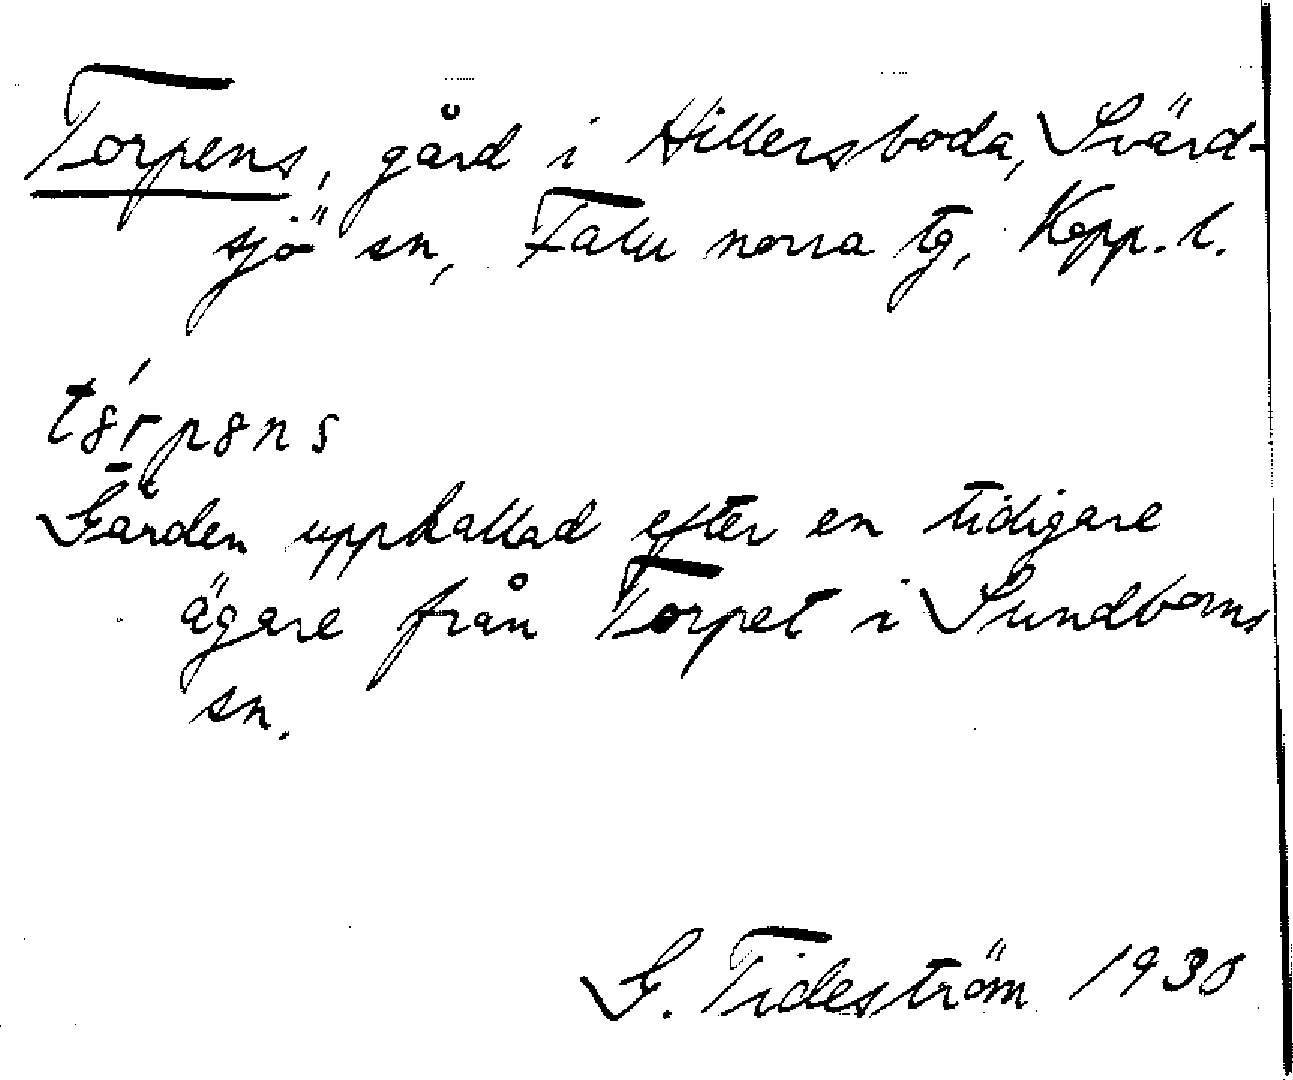 Torpens, gård i Hillersboda, Svärd-
sjö sn, Falu norra tg, Kopp. l.
Gården uppkallad efter en tidigare
ägare från Torpet i Sundborns
sn.
G. Tideström 1930